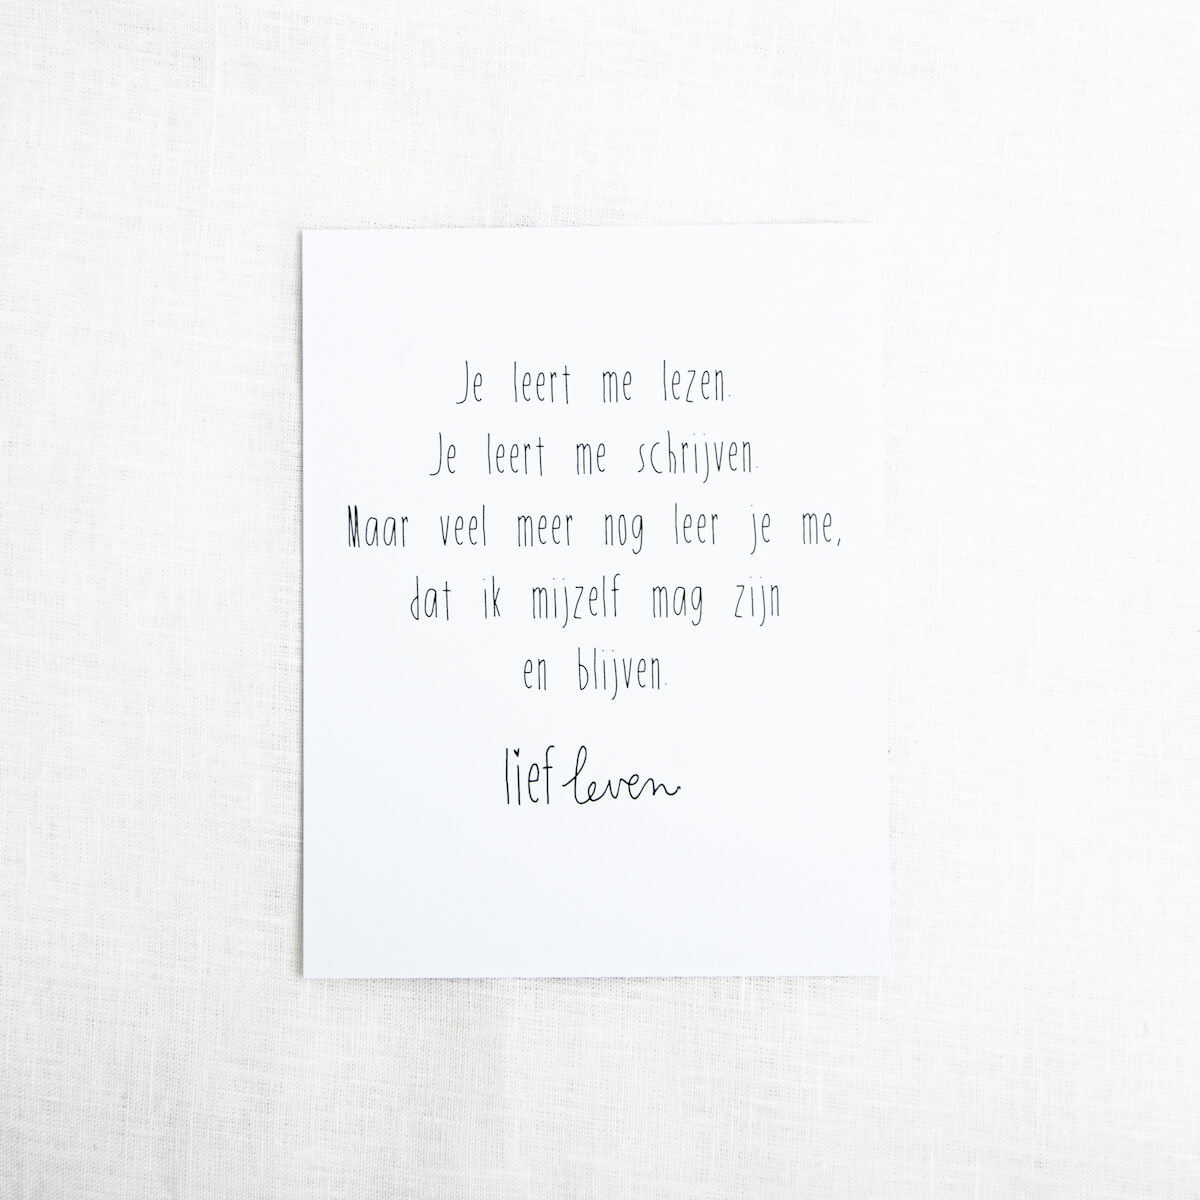 Je leert me lezen.
Je leert me schrijven.
Maar veel meer nog leer je me,
dat ik mijzelf mag zijn
en blijven.
lief leven.